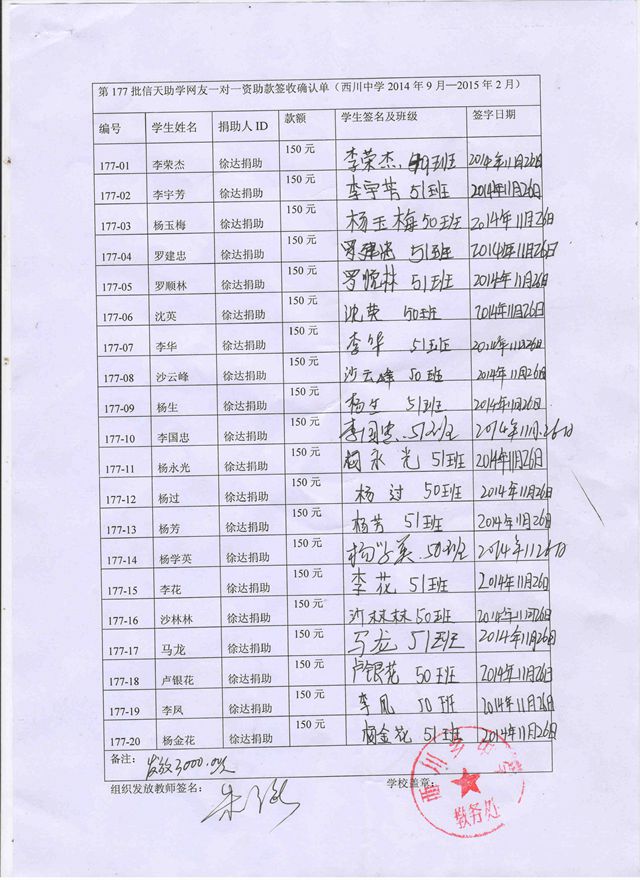 第 177 批信天助学网友一对一资助款签收确认单（西川中学 2014 年 9 月—2015 年 2 月）
编号 学生姓名 捐助人 ID 款额 学生签名及班级 签字日期
177-01 李荣杰 徐达捐助 150 元 李荣杰 49班 2014年11月26日
177-02 李宇芳 徐达捐助 150 元 李宇芳 51班 2014年11月26日
177-03 杨玉梅 徐达捐助 150 元 杨玉梅 50班 2014年11月26日
177-04 罗建忠 徐达捐助 150 元 罗建忠 51班 2014年11月26日
177-05 罗顺林 徐达捐助 150 元 罗悦林 51班 2014年11月26日
177-06 沈英 徐达捐助 150 元 沈荣 50班 2014年11月26日
177-07 李华 徐达捐助 150 元 李华 51班 2014年11月26日
177-08 沙云峰 徐达捐助 150 元 沙云峰 50班 2014年11月26日
177-09 杨生 徐达捐助 150 元 杨生 51班 2014年11月26日
177-10 李国忠 徐达捐助 150 元 李国忠 51班 2014年11月26日
177-11 杨永光 徐达捐助 150 元 永光 51班 2014年11月26日
177-12 杨过 徐达捐助 150 元 杨过 50班 2014年11月26日
177-13 杨芳 徐达捐助 150 元 杨芳 51班 2014年11月26日
177-14 杨学英 徐达捐助 150 元 杨学英 50班 2014年11月26日
177-15 李花 徐达捐助 150 元 李花 51班 2014年11月26日
177-16 沙林林 徐达捐助 150 元 沙林林 50班 2014年11月26日
177-17 马龙 徐达捐助 150 元 马龙 51班 2014年11月26日
177-18 卢银花 徐达捐助 150 元 卢银花 50班 2014年11月26日
177-19 李凤 徐达捐助 150 元 李凤 50班 2014年11月26日
177-20 杨金花 徐达捐助 150 元 金花 51班 2014年11月26日
备注： 发放3000.0
组织发放教师签名： 学校盖章：
西川乡中学
教务处